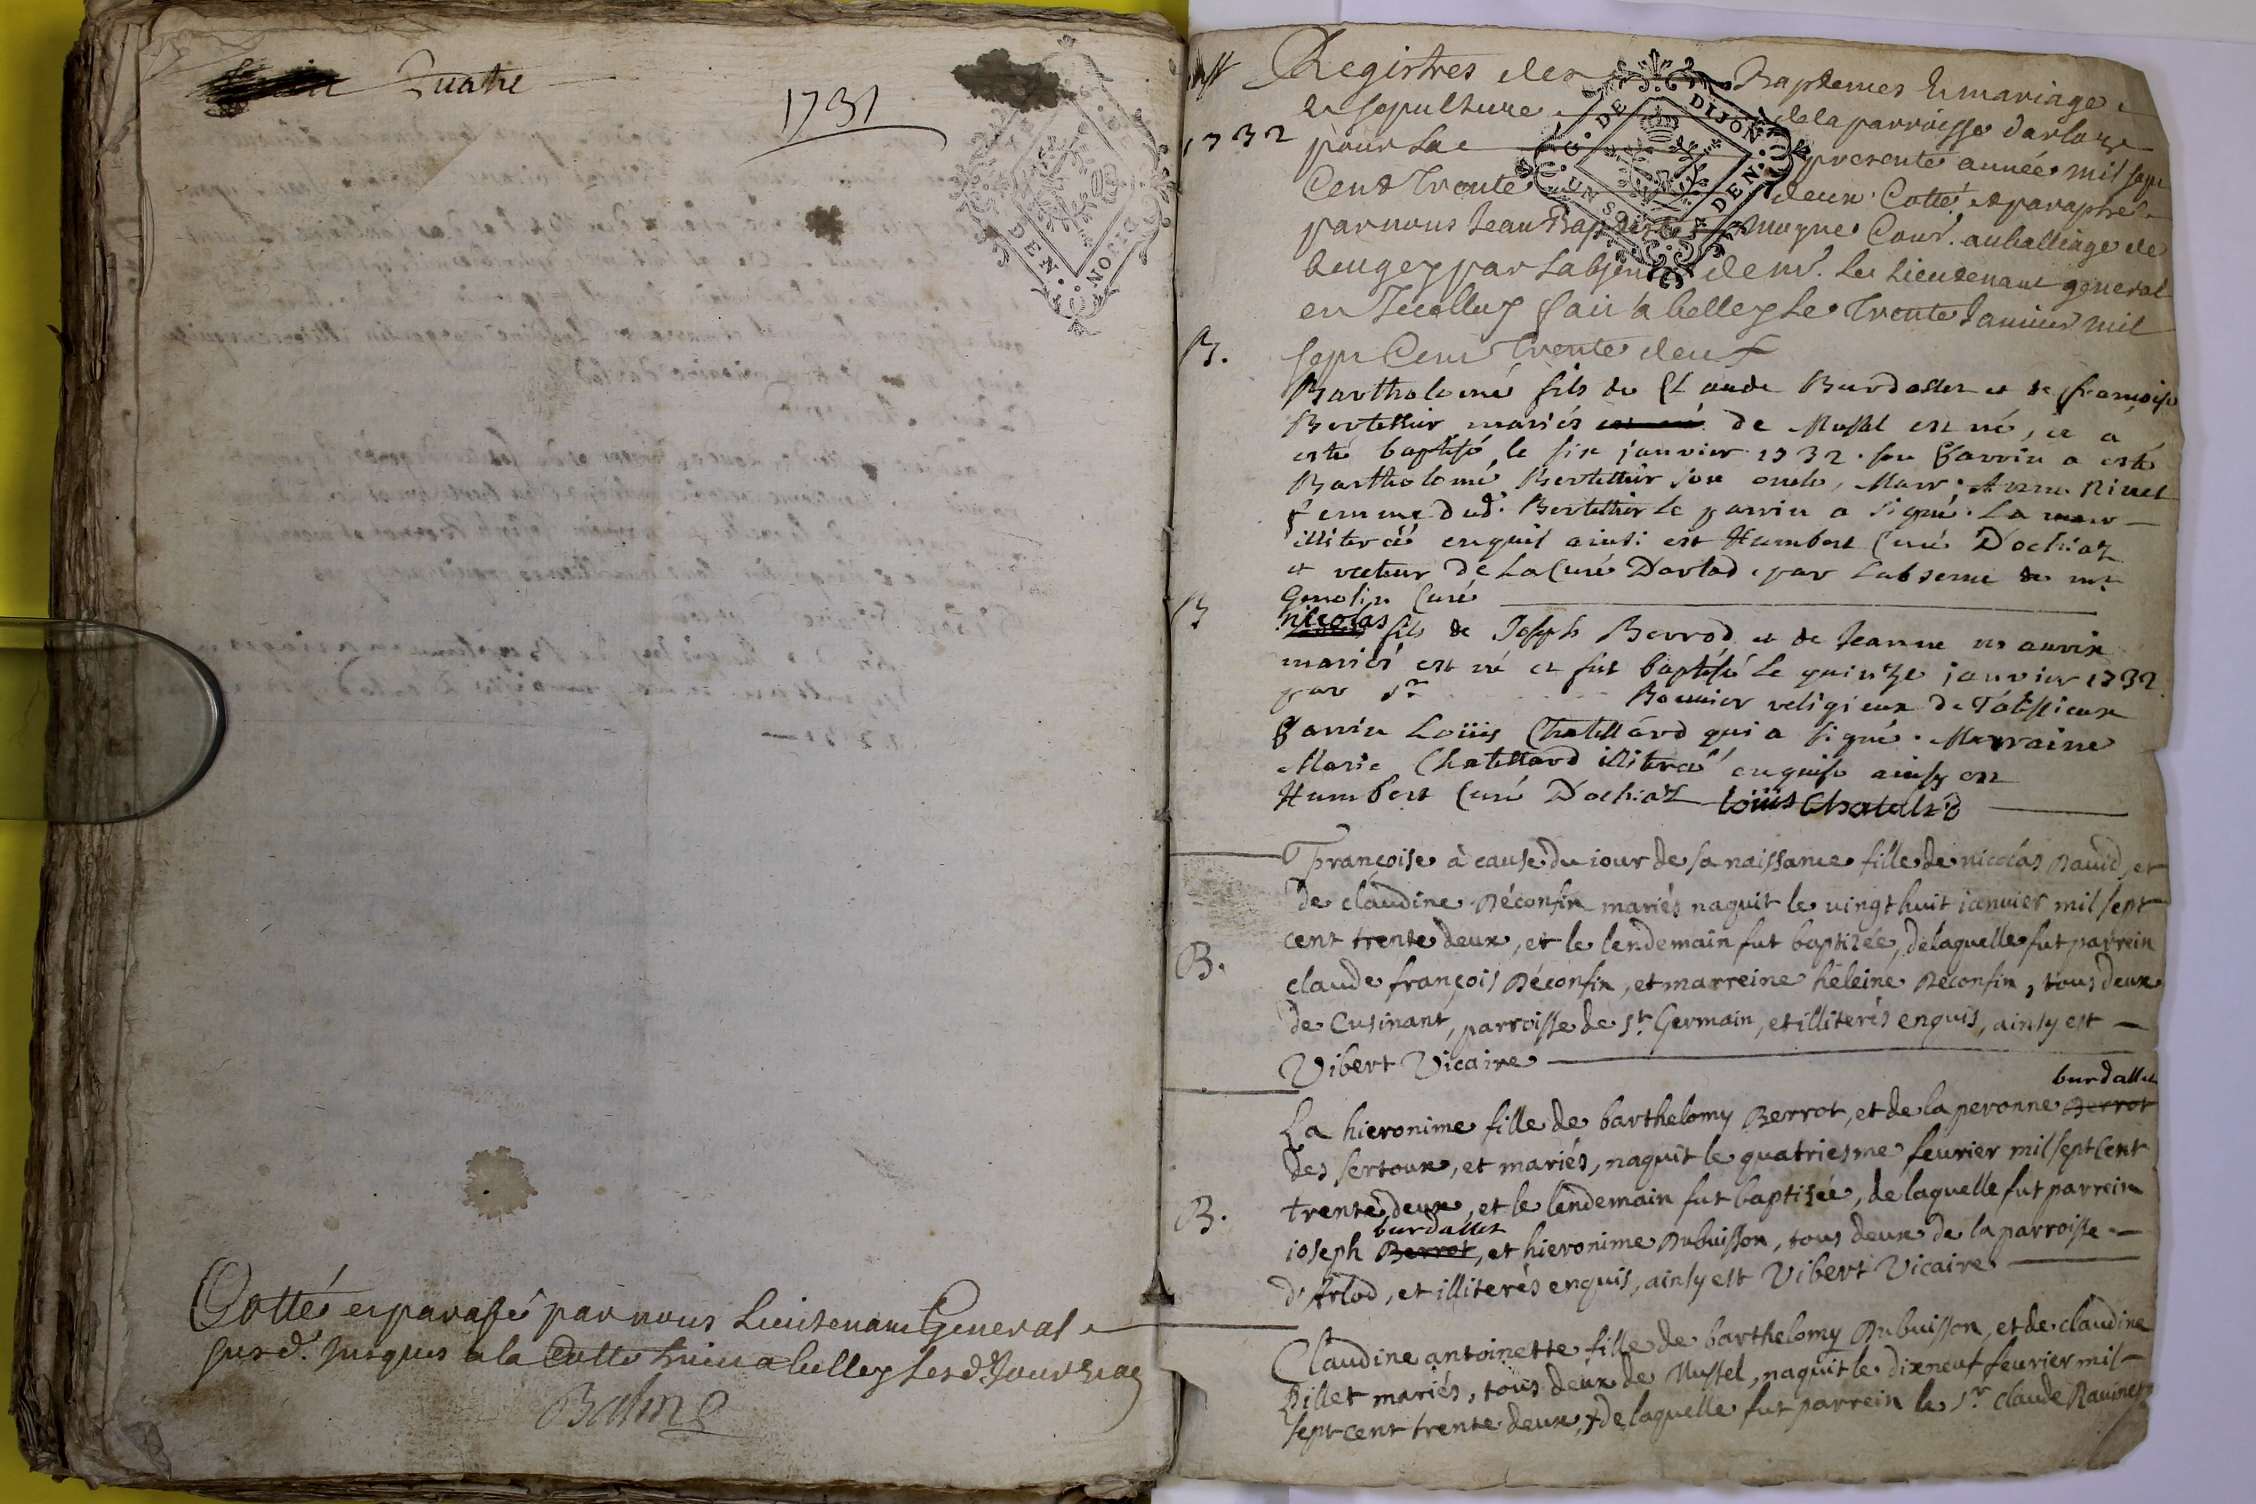 Quatre
1731
DE DIJON
DEN
Cotté et parafé par nous Lieutenant General
susd. jusques a la cotte huit a belley lesd. Jour et an
Balme
Registres des Baptemes et mariage
et sepulture de la parroisse darlod
1732 pour la presente année mil sept
Cent trente deux Cotté et paraphé
par nous Jean Baptiste Cons. au balliage de
beugey par labsence de mr. le Lieutenant general
en fait a belley le trente Janvier mil
sept Cent trente deux
G. DE DIJON
UN SOL DEN
B.
Bartholomé fils de Claude Burdallet et de françoise
Bertettier mariés de Mussel est né, et a
esté baptisé le six janvier 1732. son parrin a esté
Bartholomé Bertettier son oncle, Marr. Anne Rivet
femme dud. Bertettier le parrin a signé. La marr
illiterée enquis ainsi est Humbert Curé Dochiaz
et recteur de La Cure Darlod par Labsence de mr
Genolin Curé
B
nicolas fils de Joseph Berrod et de Jeanne
mariés est né et fut baptisé Le quinze janvier 1732
par sr Bounier religieux de
Parrin Loüis Chatillard qui a signé. Marraine
Marie Chatillard illiterée enquise ainsy est
Humbert Curé Dochiaz Loüis Chatillard
Françoise à cause du iour de sa naissance fille de nicolas David, et
de claudine Déconfin mariés naquit le vingt huit ianvier mil sept
cent trente deux, et le lendemain fut baptizée, de laquelle fut parrein
B.
claude françois Déconfin, et marreine héleine Déconfin, tous deux
de Cusinant, parroisse de st. Germain, et illiterés enquis, ainsy est
Vibert Vicaire
burdallet
La hieronime fille de barthelomy Berrot, et de la peronne Berrot
des sertoux, et mariés, naquit le quatriesme feurier mil sept Cent
B.
trente deux, et le lendemain fut baptisée, de laquelle fut parrein
burdallet
ioseph Berrot, et hieronime Dubuisson, tous deux de la parroisse
d'Arlod, et illiterés enquis, ainsy est Vibert Vicaire
Claudine antoinette fille de barthelomy Dubuisson, et de claudine
Pillet mariés, tous deux de Mussel, naquit le dixneuf feurier mil
sept cent trente deux, de laquelle fut parrein le sr. claude Ravinet